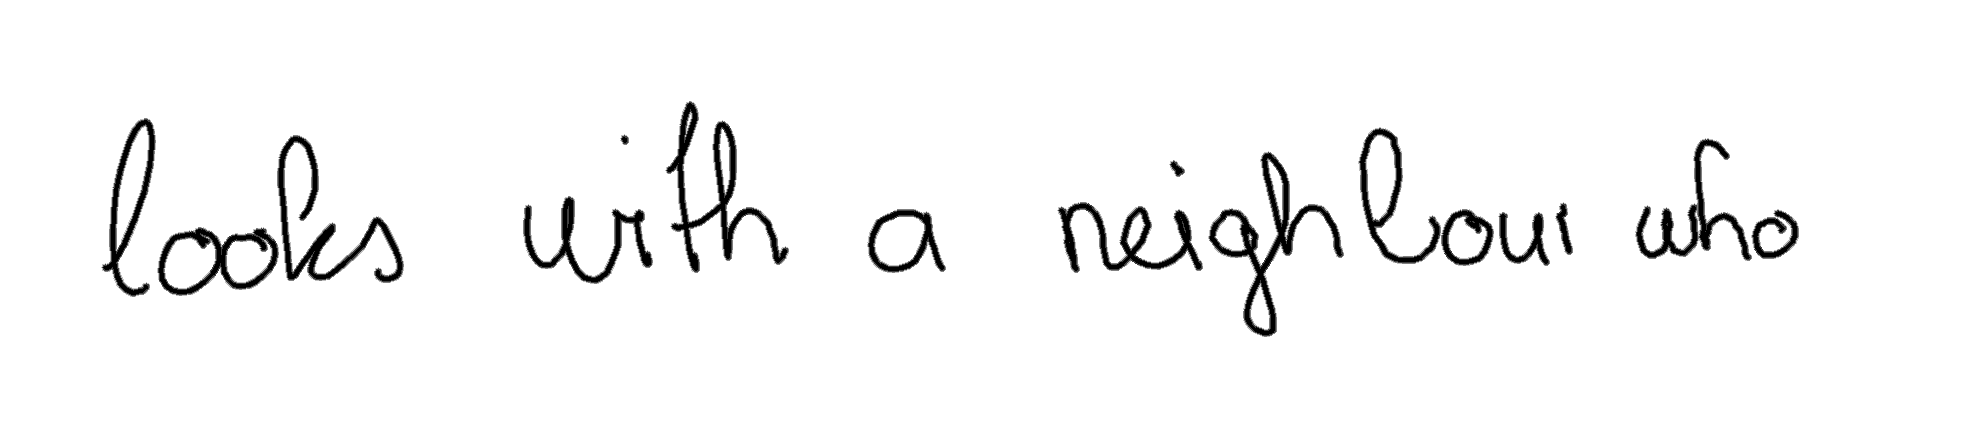 looks with a neighbour who